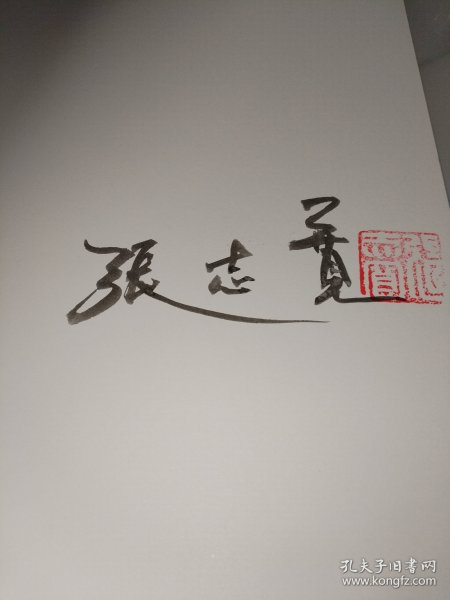 張志寛
孔夫子旧书网
www.kongfz.com